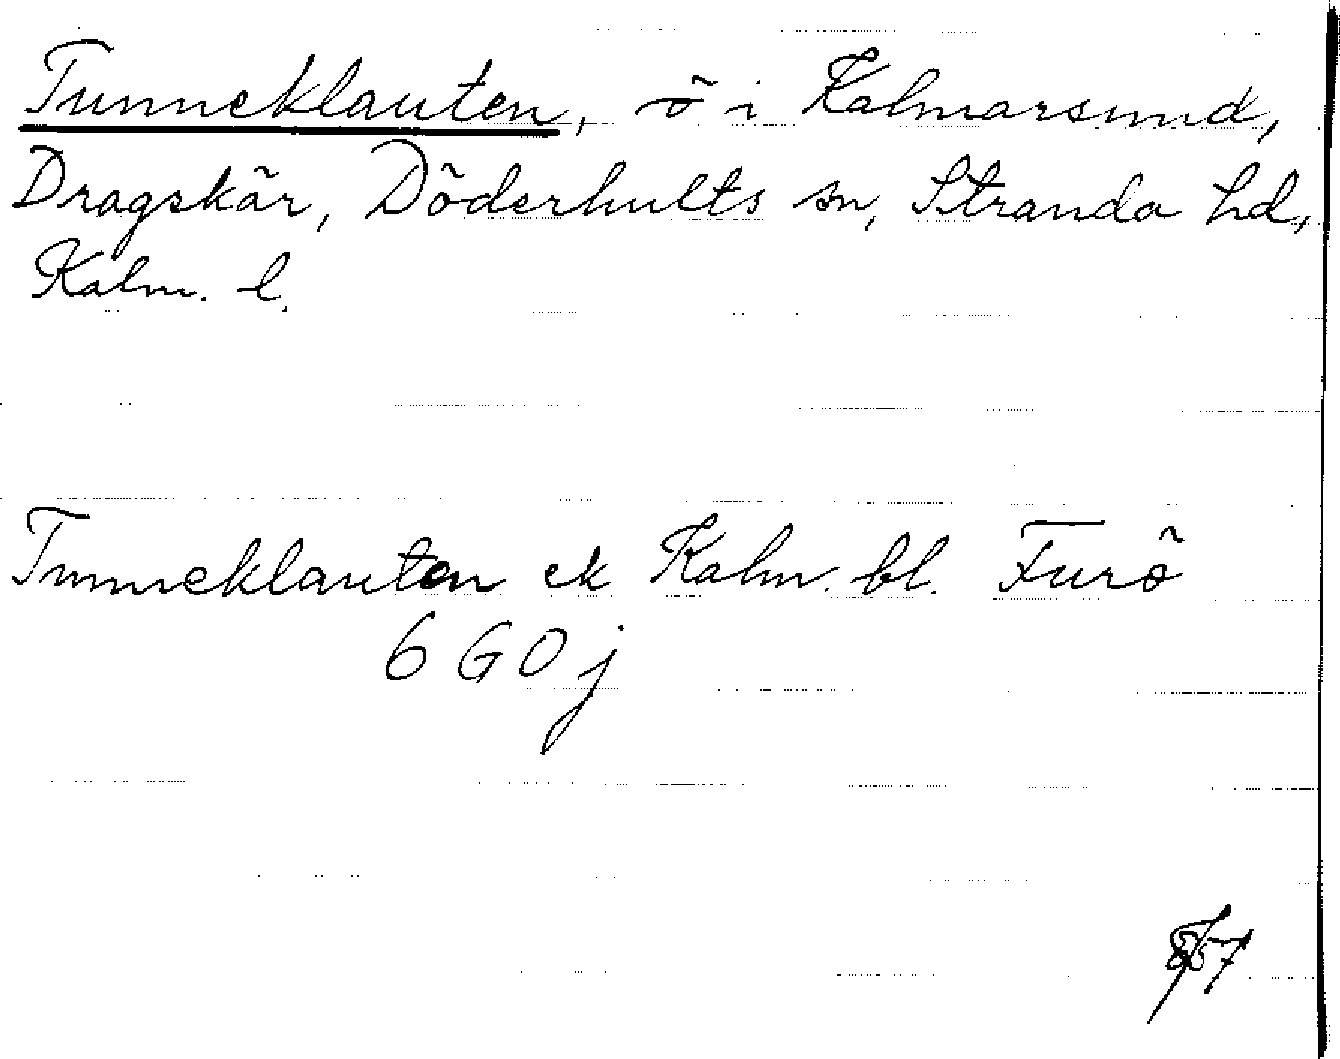 Tunneklauten, ö i Kalmarsund,
Dragskär, Döderhults sn, Stranda hd,
Kalm. l.
Tunneklauten ek Kalm. bl. Furö
6 G 0 j